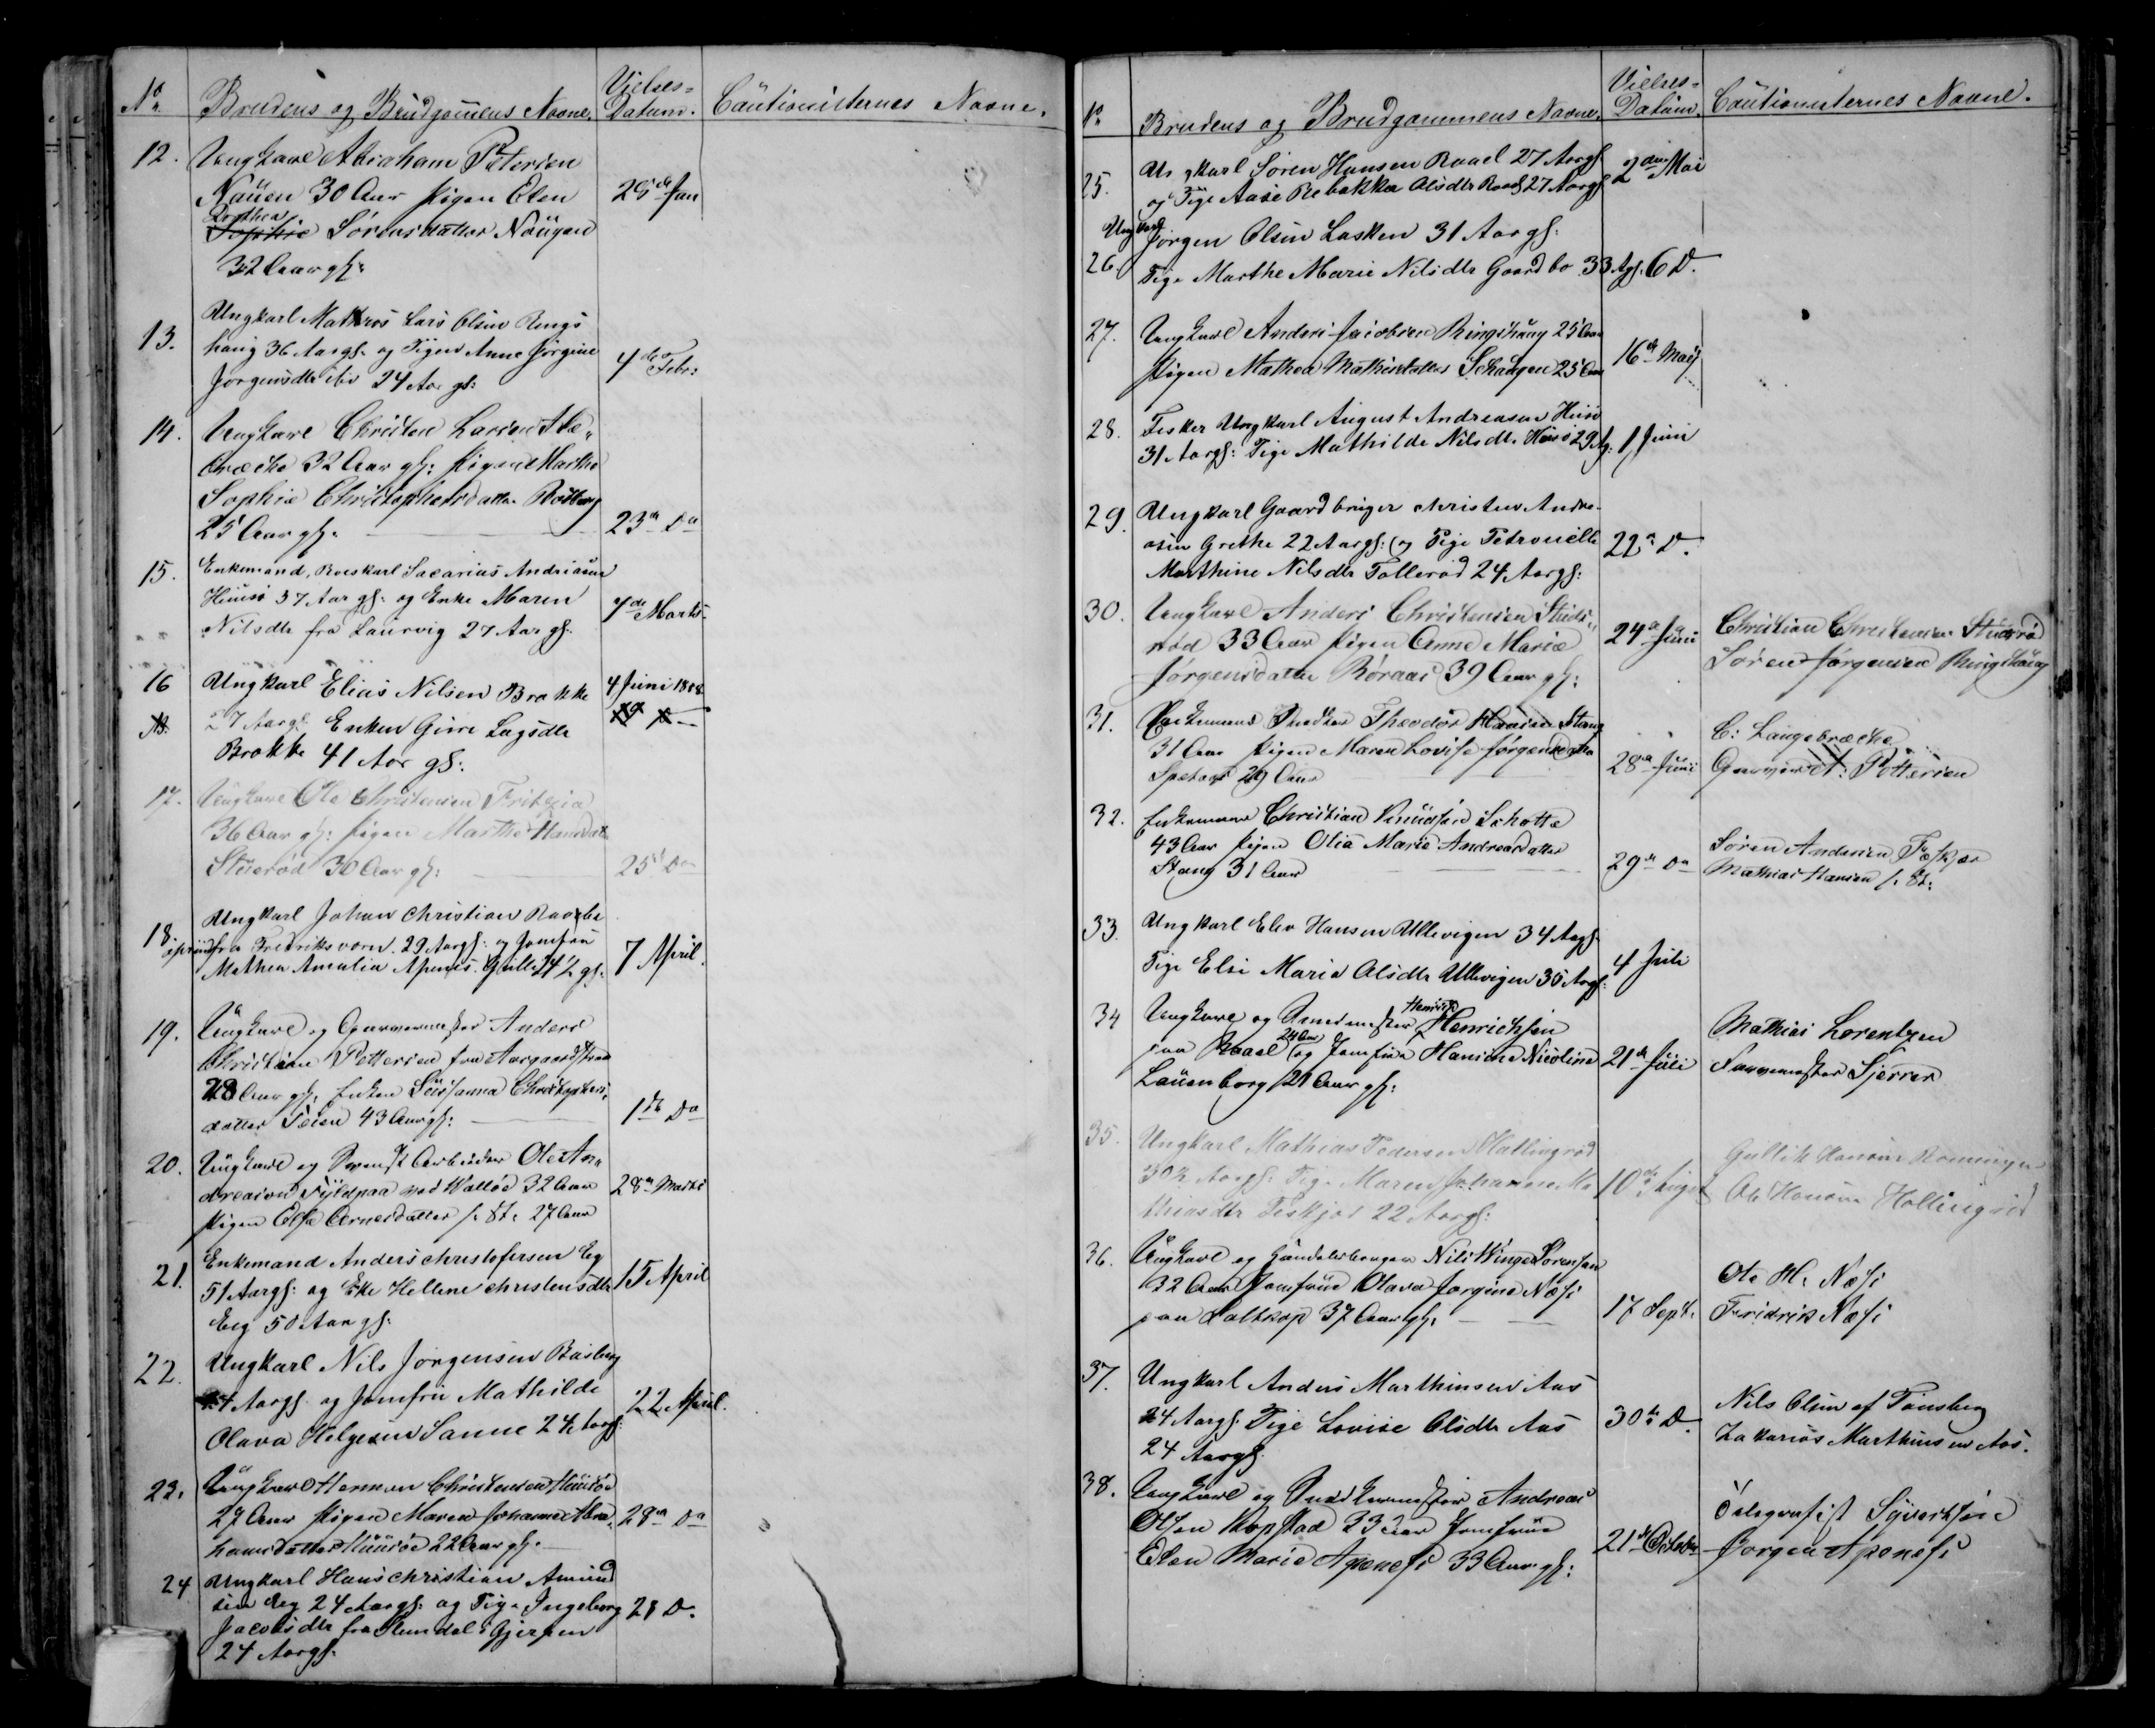 No Brudens og Brudgomens Navne. Vielses= Datum. Cautionisternes Navne.
12. Ungkarl Abraham Petersen
Nauen 30 Aar Pigen Elen 25de Jan
Dorthea
Sophie Sørensdatter Nøugen
32 Aar gl:
13. Ungkarl Matros Lars Olsen Rings
haug 36 Aargl. og Pigen Anne Jørgine 4de Febr:
Jørgensdtr ibi 24 Aar gl:
14. Ungkarl Christen Larsen
32 Aar gl: Pigen Marthe
Sophie Christophersdatter Basberg
25 Aar gl. 23de Do
15. Enkemand, Sacarias Andriasen
Huusø 37 Aar gl: og Enke Maren 7de Marts.
Nilsdtr fra Laurvig 27 Aar gl.
16 Ungkarl Elias Nilsen Brokke 4 Juni 1858
27 Aargl. Enken Lagsdtr
Brokke 41 Aar gl:
17. Ungkarl Ole Christensen
36 Aar gl: Pigen Marthe Hansdatt
Stuerød 30 Aar gl: 25de Do
18. Ungkarl Johan Christian
fra Fredriksværn 29 Aargl: og Jomfru 7 April.
Mathea Amalia Apenes 24 1/2 gl.
19. Ungkarl og Garvermester Anders
Christian Pettersen fra Aargaardstrand
28 Aar gl: Enken Susanna Christophers
datter Teien 43 Aar gl: 1ste Do
20. Ungkarl og Arbeider Ole An„
dreasen Fyldpaa ved Walløe 32 Aar 28de Marts
Pigen Else Arnesdatter s. St: 27 Aar
21. Enkemand Anders Christofersen Eeg
51 Aargl: og Eke Hellene Christensdtr 15 April
Eeg 50 Aar gl:
22. Ungkarl Nils Jørgensen Basberg
24 Aargl. og Jomfru Mathilde 22 April.
Olava Helgesen Sanne 24 Aargl:
23. Ungkarl Herman Christensen Huusøe
27 Aar Pigen Maren Johanne Abra„ 28de Do
hamsdatter Huusøe 22 Aar gl.
24 Ungkarl Hans Christian Amund
sen Eeg 24 Aargl: og Pige Ingeborg 28 D.
Jacobsdtr fra i Gjerpen
24 Aargl.
No Brudens og Brudgommens Navne. Vielses= Datum. Cautionisternes Navne.
25. Ungkarl Søren Hansen Raael 27 Aargl 2den Mai
og Pige Aase Rebekka Olsdtr Raael 27 Aargl
Ungkarl
26. Jørgen Olsen Lasken 31 Aar gl:
Pige Marthe Marie Nilsdtr Gaardbo 33 Agl. 6 D.
27. Ungkarl Anders Jacobsen Ringshaug 25 Aar
Pigen Mathea Mathisdatter 25 Aar 16de Maij
28. Fisker Ungkarl August Andreasen Husø
31 Aargl: Pige Mathilde Nilsdtr Husø 29 Ag: 1 Juni
29. Ungkarl Gaardbruger Christen Andre
asen Grethe 22 Aargl: og Pige Petronelle 22de D.
Marthine Nilsdtr Tollerød 24 Aargl:
30. Ungkarl Anders Christensen Studs„
rød 33 Aar Pigen Anne Marie 24de Juni Christian Christensen
Jørgensdatter Røraas 39 Aar gl: Søren Jørgensen Ringshaug
31. Enkemand Snedker Theodor Hansen Stang C: Langebrække
31 Aar Pigen Maren Lovise Jørgensdatter 28de Juni Garver A: Pettersen
29 Aar
32. Enkemand Christian Knudsen Schotte
43 Aar Pigen Olia Marie Andreasdatter Søren Andersen
Stang 31 Aar 29de Do Mathias Hansen s. St:
33. Ungkarl Elev Hansen Ullevigen 34 Aagl.
Pige Else Maria Olsdtr Ullevigen 35 Aargl: 4 Juli
34 Ungkarl og Smedmester Henrich Henrichsen Mathias Lorentzen
paa Raael 24 Aar og Jomfrue Hansine Nicoline 21de Juli Farvemester Sjerrer
Lauenborg 21 Aar gl:
35. Ungkarl Mathias Pedersen Hallingrød Gullik Hansen
30 1/2 Aargl: Pige Maren Johanne Ma 10de August Ole Hansen Hallingrød
thiasdtr 22 Aargl:
36. Ungkarl og Handelsborger Nils Winge Sørensen
32 Aar Jomfrue Olava Jørgine Næss Ole H. Næss
paa 37 Aar gl. 17 Sept: Fridrik Næss
37. Ungkarl Anders Marthinsen Aas
24 Aargl. Pige Lovise Olsdtr Aas 30te D. Nils Olsen af Tønsberg
24 Aargl. Zakarias Marthinsen Aas.
38. Ungkarl og Snedkermester Andreas
Olsen Kopstad 33 Aar Jomfrue Telegrafist Syvertsen
Elen Marie Apeness 33 Aar gl: 21de October Jørgen Apeness